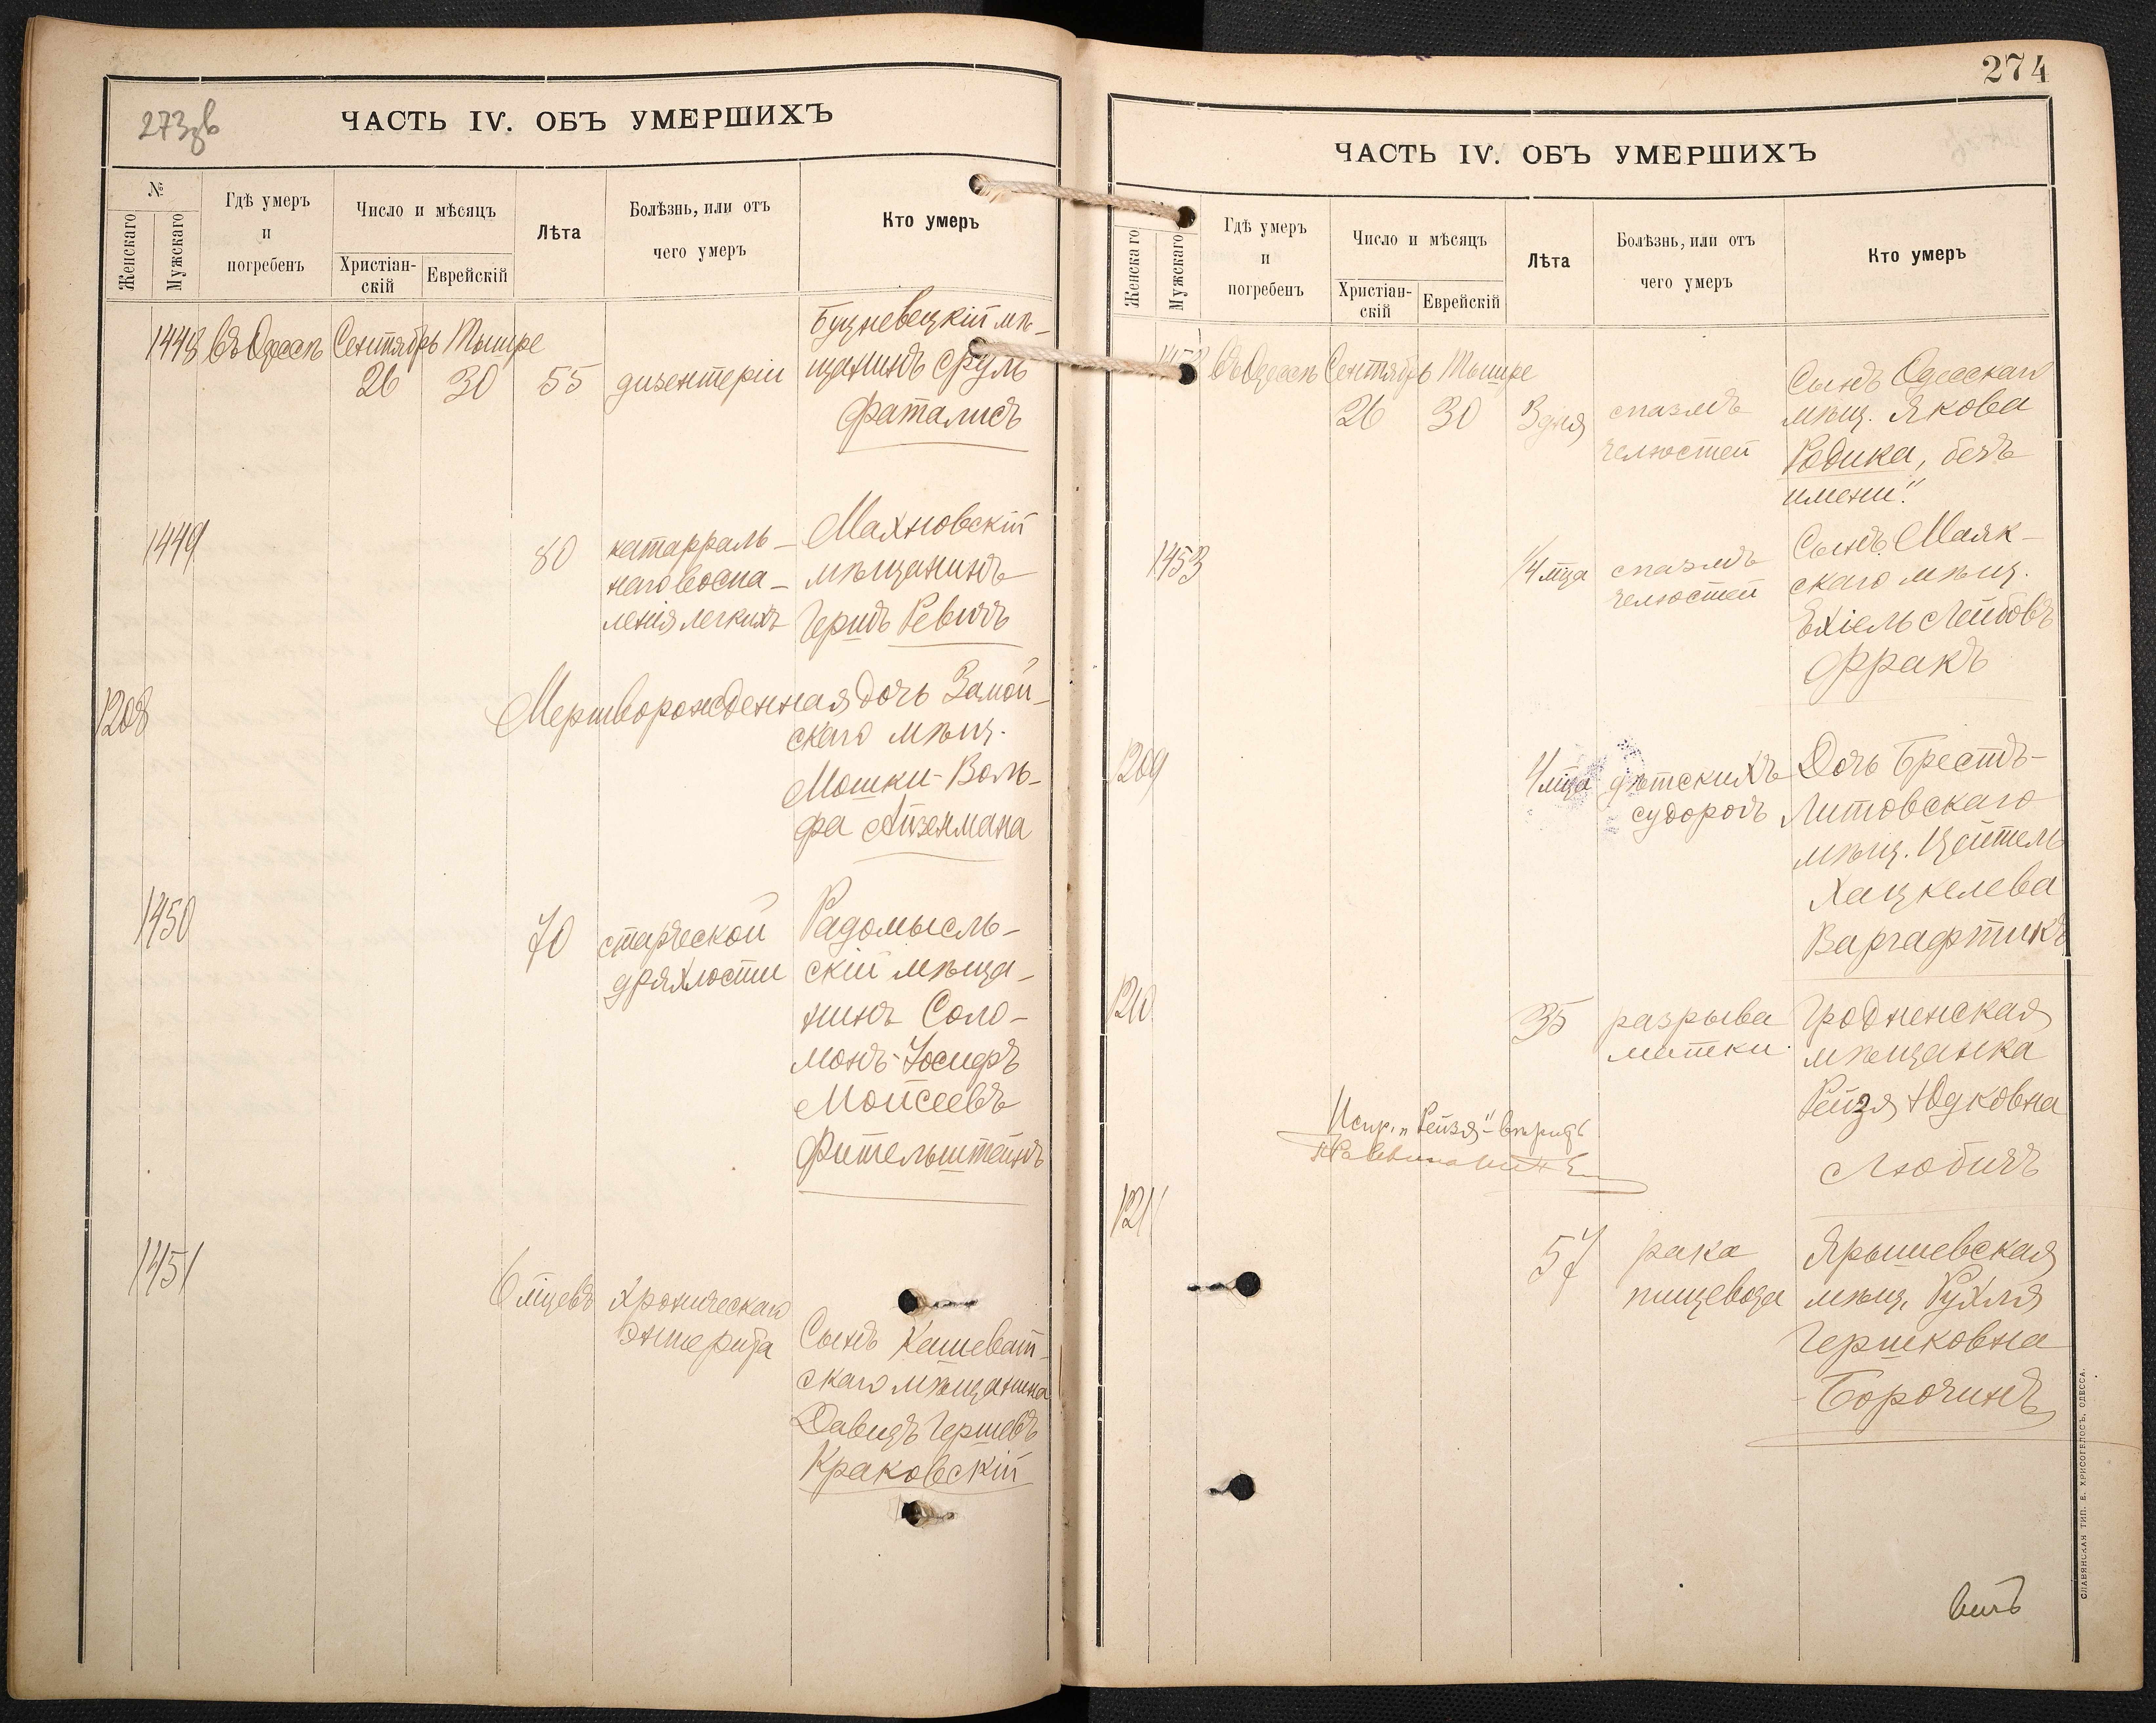 273об
ЧАСТЬ IV. ОБЪ УМЕРШИХЪ
№
Женскаго
Мужскаго
Гдѣ умеръ
и
погребенъ
Число и мѣсяцъ
Христіан-
скій
Еврейскій
Лѣта
Болѣзнь, или отъ
чего умеръ
Кто умеръ
1448 Въ Одессѣ Сентябрь Тишре
26 30 55 дизентеріи
Буцневецкій мѣ-
щанинъ Сруль
Фаталисъ
1449
80
катарраль-
наго воспа-
ленія легкихъ
Махновскій
мѣщанинъ
Гершъ Ревичъ
1208
Мертворожденная дочь Замой-
скаго мѣщ.
Мошки-Воль-
фа Айзенмана
1450
70
старческой
дряхлости
Радомысль-
скій мѣща-
нинъ Соло-
монъ-Іосифъ
Мойсеевъ
Фительштейнъ
1451
6 мцевъ
хроническаго
энтерита
Сынъ Кашеват-
скаго мѣщанина
Давидъ Гершевъ
Краковскій
274
ЧАСТЬ IV. ОБЪ УМЕРШИХЪ
Женскаго
Мужскаго
Гдѣ умеръ
и
погребенъ
Число и мѣсяцъ
Христіан-
скій
Еврейскій
Лѣта
Болѣзнь, или отъ
чего умеръ
Кто умеръ
1452 Въ Одессѣ Сентябрь Тишре
26 30 3 дня
спазмъ
челюстей
Сынъ Одесскаго
мѣщ. Якова
Родика, безъ
имени"
1453
1/4 мца
спазмъ
челюстей
Сынъ Маяк-
скаго мѣщ.
Ехіель Лейбовъ
Фракъ
1209
4 мца
дѣтскихъ
судорогъ
Дочь Брестъ-
Литовскаго
мѣщ. Цейтель
Хацкелева
Варгафтикъ
1210
35
разрыва
матки
Гродненская
мѣщанка
Рейзя Юдковна
Любичъ
Испр. "Рейзя" - вѣрить
1211
57
рака
пищевода
Ярышевская
мѣщ. Рухля
Гершковна
Борочинъ
вичъ
СЛАВЯНСКАЯ ТИП. Е. ХРИСОГЕЛОСЪ, ОДЕССА.